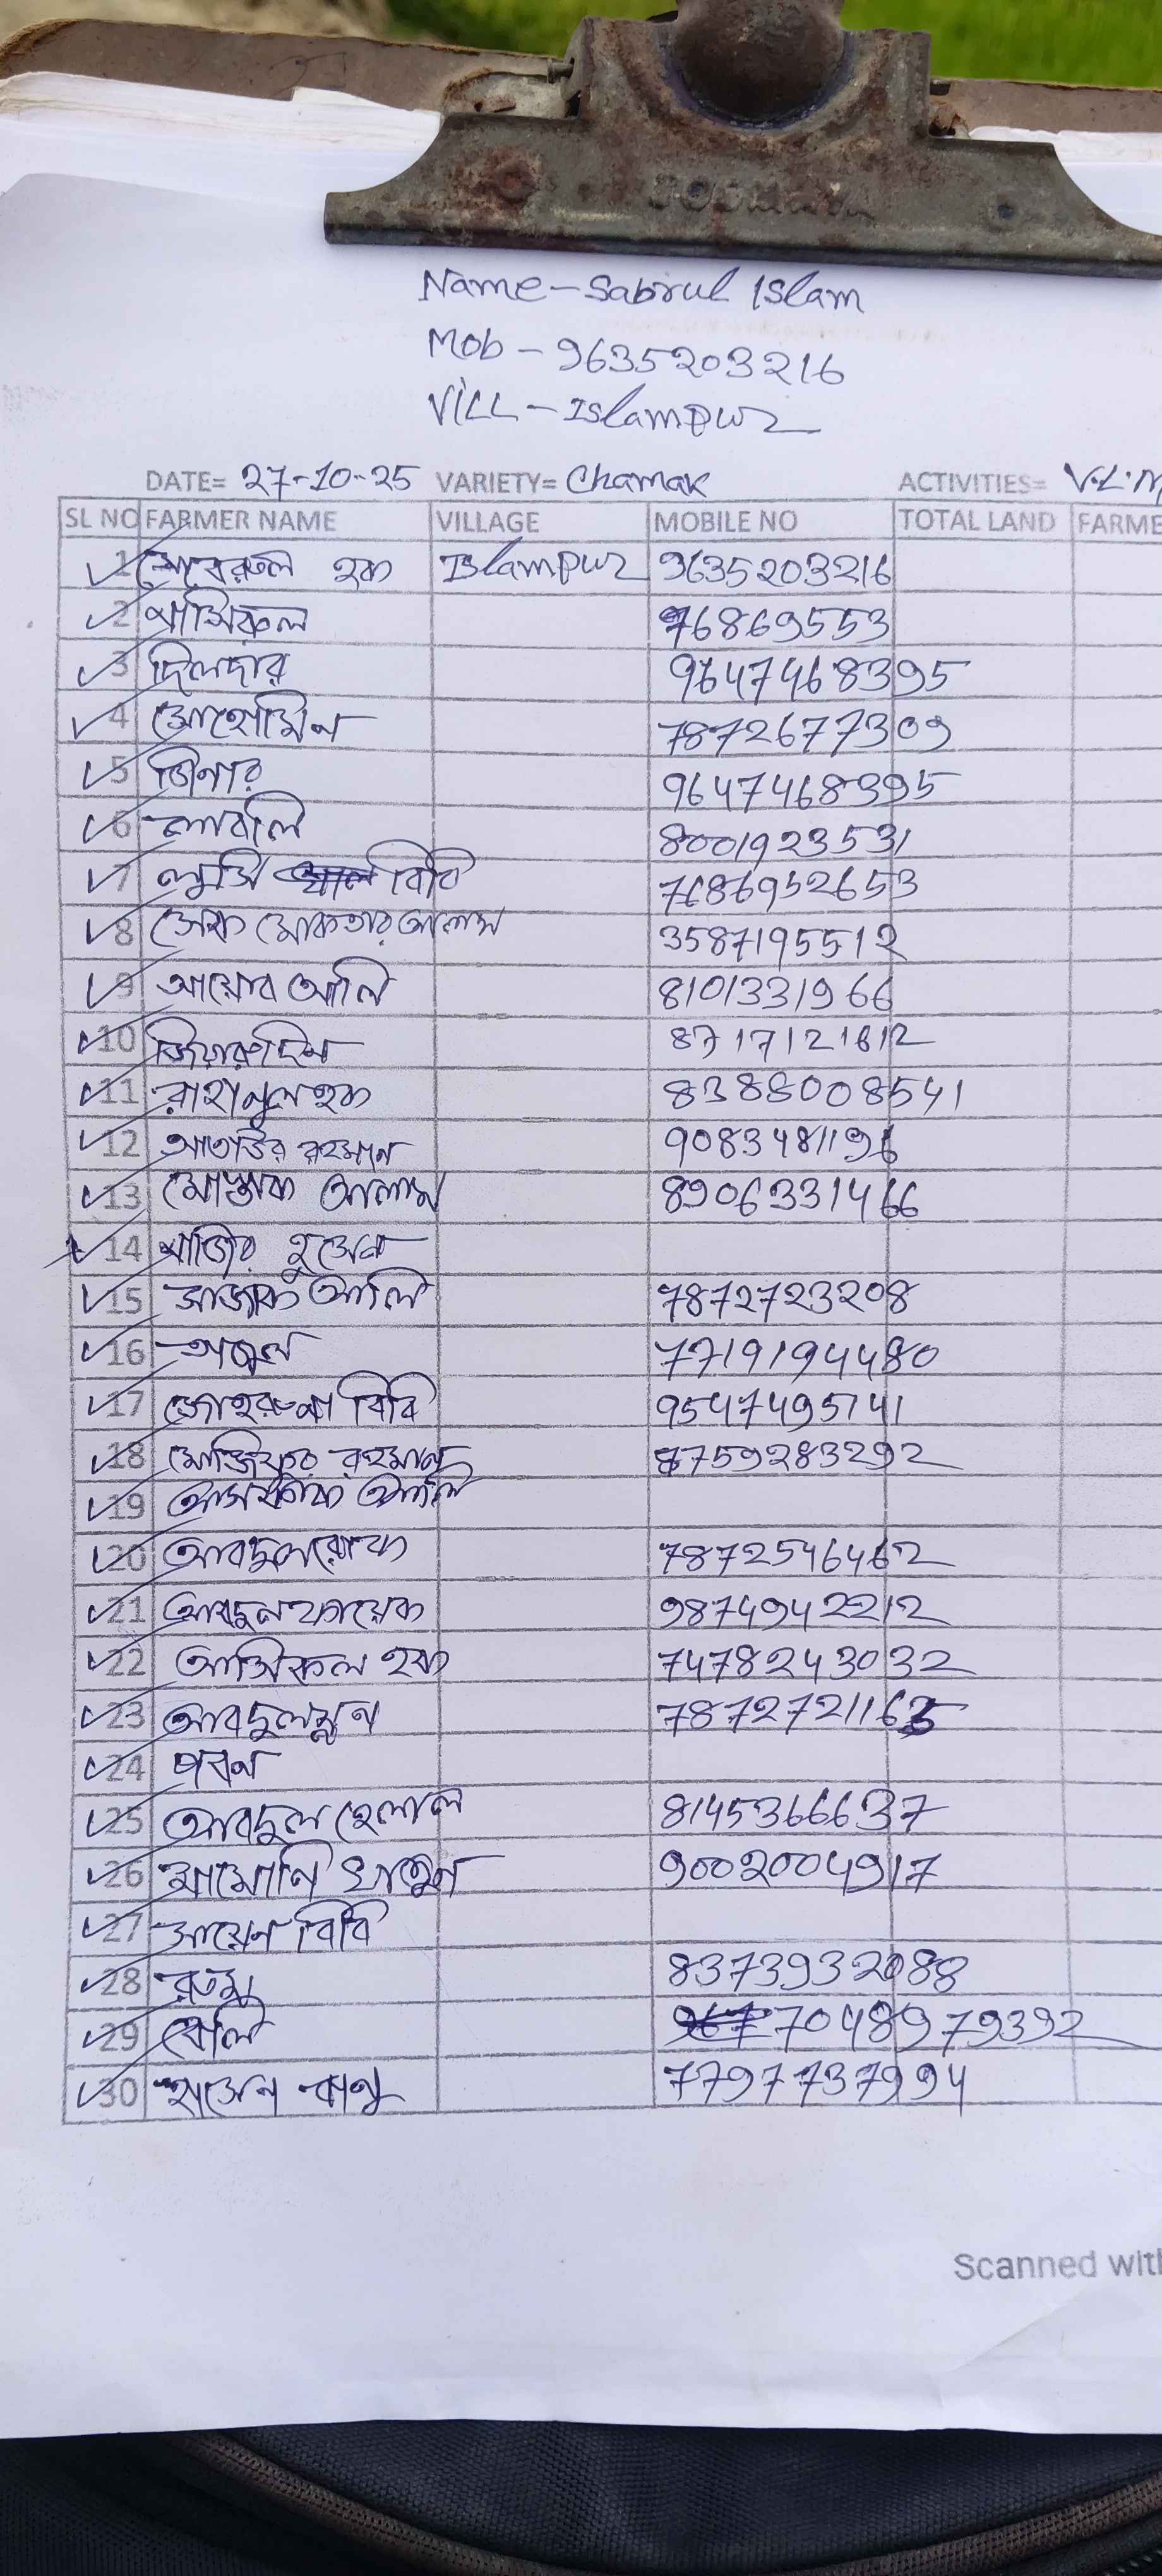 Name - Sabirul Islam
Mob - 9635203216
Vill - Islampur
DATE= 27-10-25 VARIETY= Chamak ACTIVITIES= V.L.M
SL NO FARMER NAME VILLAGE MOBILE NO TOTAL LAND FARME
1 হক Islampur 9635203216
2 76869553
3 দিলদার 9647468395
4 মোহোমিন 7872677309
5 জিনার 9647468395
6 লাবলি 8001923531
7 লুসি বিবি 7686952653
8 সেখ মোকতার আলম 3587195512
9 আয়োব আলি 8101331966
10 8717121612
11 হক 8388008541
12 আতাউর রহমান 9083481196
13 মোস্তাক আলাম 8906331466
14 হুসেন
15 আলি 7872723208
16 7719194480
17 বিবি 9547495741
18 রহমান 8759283292
19 আসফাক আলি
20 7872546462
21 9874942212
22 হক 7478243032
23 787272116
24 পবন
25 আবদুল হেলাল 8145366637
26 খাতুন 9002004917
27 সায়েন বিবি
28 8373932088
29 বেলি 7048979392
30 হাসেন বানু 7797737994
Scanned with